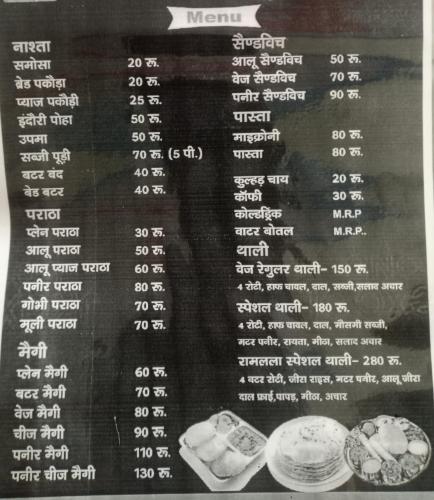 Menu
नाश्ता
समोसा 20 रू.
ब्रेड पकौड़ा 20 रू.
प्याज पकौड़ी 25 रू.
इंदौरी पोहा 50 रू.
उपमा 50 रू.
सब्जी पूड़ी 70 रू. (5 पी.)
बटर बंद 40 रू.
बेड बटर 40 रू.
पराठा
प्लेन पराठा 30 रू.
आलू पराठा 50 रू.
आलू प्याज पराठा 60 रू.
पनीर पराठा 80 रू.
गोभी पराठा 70 रू.
मूली पराठा 70 रू.
मैगी
प्लेन मैगी 60 रू.
बटर मैगी 70 रू.
वेज मैगी 80 रू.
चीज मैगी 90 रू.
पनीर मैगी 110 रू.
पनीर चीज मैगी 130 रू.
सैण्डविच
आलू सैण्डविच 50 रू.
वेज सैण्डविच 70 रू.
पनीर सैण्डविच 90 रू.
पास्ता
माइक्रोनी 80 रू.
पास्ता 80 रू.
कुल्हड़ चाय 20 रू.
कॉफी 30 रू.
कोल्डड्रिंक M.R.P
वाटर बोतल M.R.P..
थाली
वेज रेगुलर थाली- 150 रू.
4 रोटी, हाफ चावल, दाल, सब्जी,सलाद अचार
स्पेशल थाली- 180 रू.
4 रोटी, हाफ चावल, दाल, मौसमी सब्जी,
मटर पनीर, रायता, मीठा, सलाद अचार
रामलला स्पेशल थाली- 280 रू.
4 बटर रोटी, जीरा राइस, मटर पनीर, आलू जीरा
दाल फ्राई,पापड़, मीठा, अचार